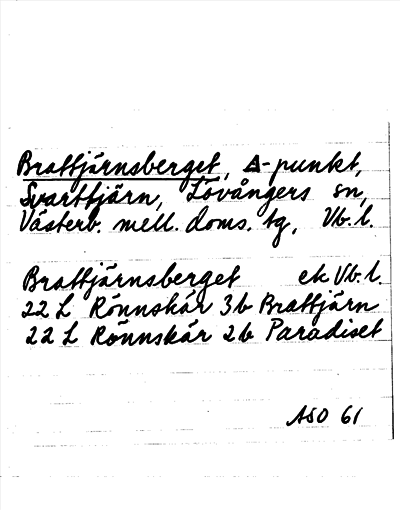 Brattjärnsberget, Δ-punkt,
Svarttjärn, Lövångers sn,
Västerb. mell. doms. tg, Vb. l.
Brattjärnsberget ek Vb. l.
22 L Rönnskär 3b Brattjärn
22 L Rönnskär 2b Paradiset
ASO 61